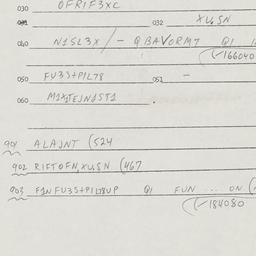 030 OFRIF3XC
031 032 XU,SN
040 N1SL3X/- QBAVORM7 Q1
(-166040
050 FU3S+PIL78 052 -
060
901 ALAJNT (524
902 RIFTOFN,XU,SN (467
903 F1NFU3S+PIL78UP Q1 FUN ... ON (
(-184080